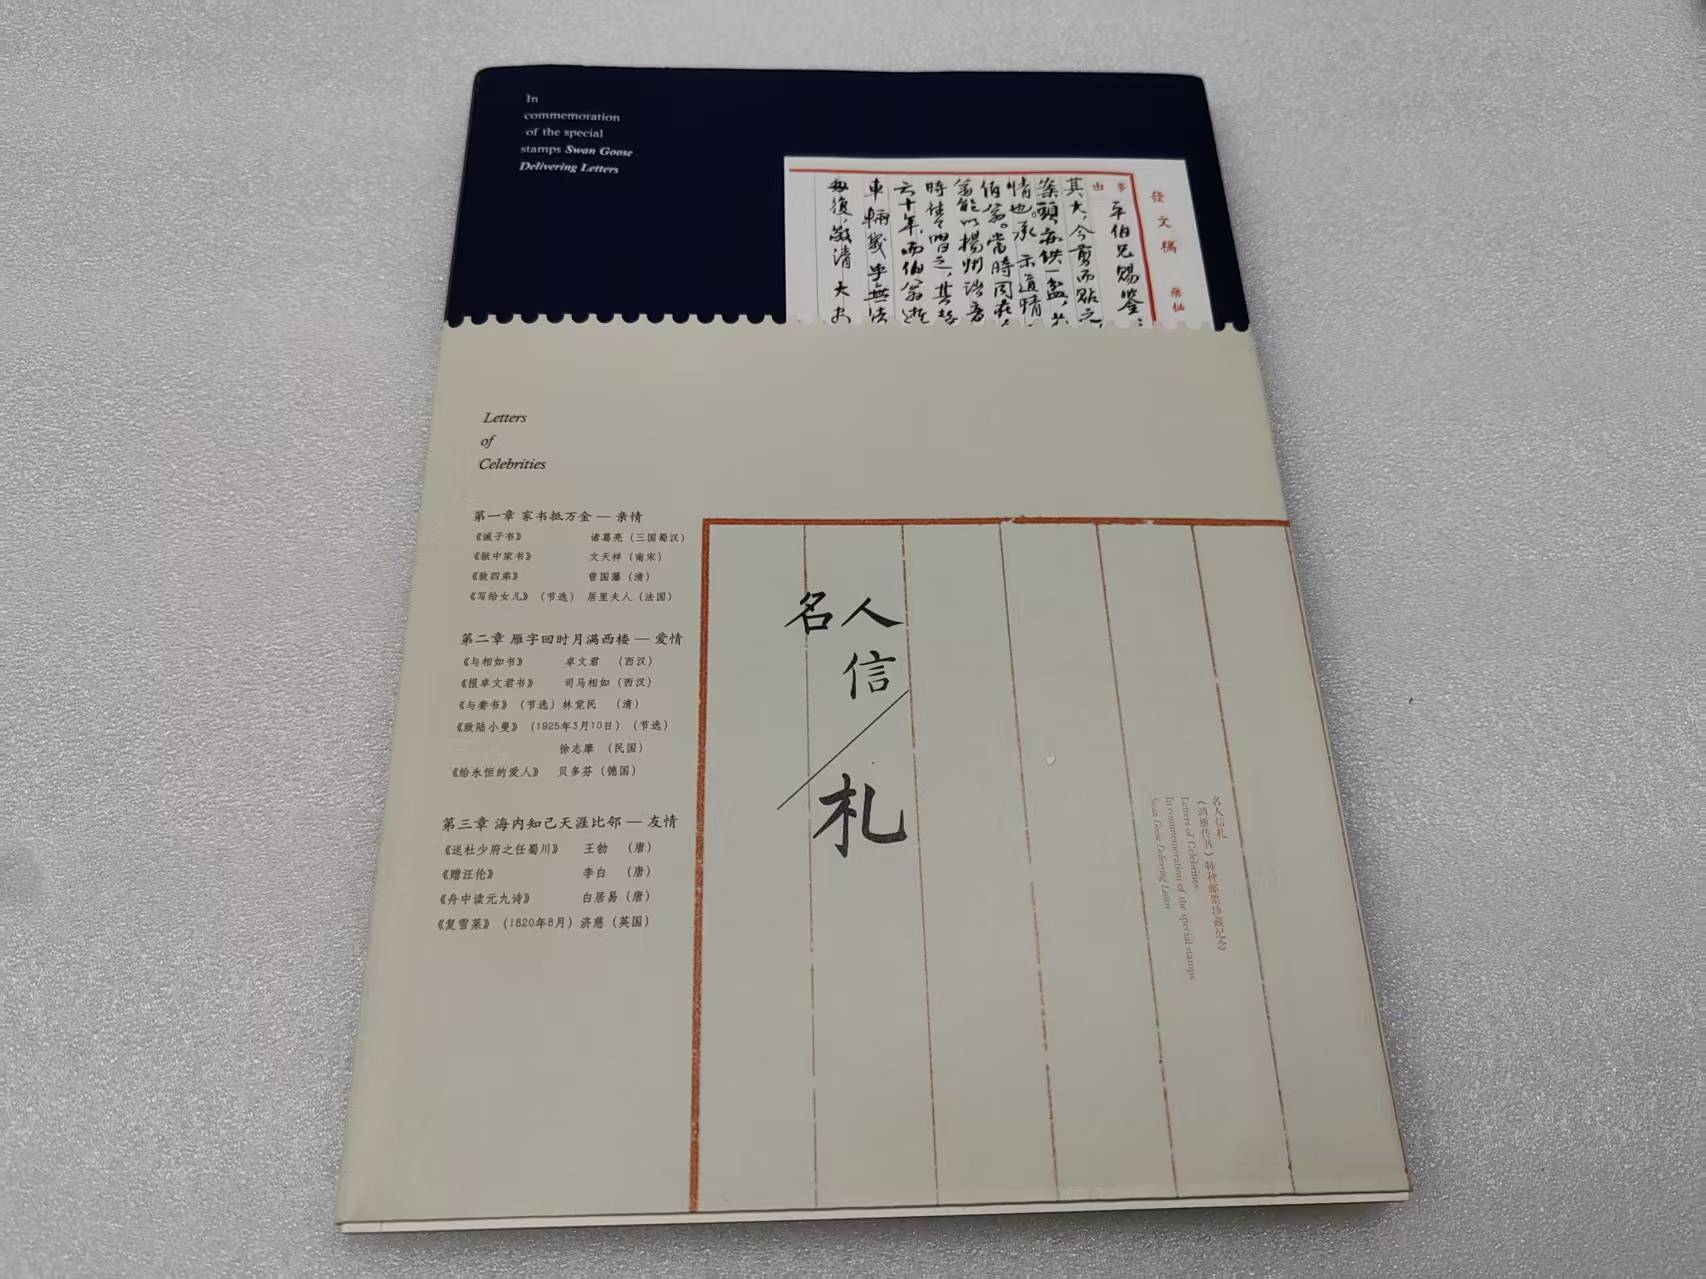 In
commemoration
of the special
stamps Swan Goose
Delivering Letters
發文稿
事
由
平伯兄賜鑒：
其大，今剪而貼之，
案頭每供一盆，
情也。承示道情
伯翁。當時同在
翁能以揚州
六十年，而伯翁逝
車輛幾乎無法
匆復，敬請大安
Letters
of
Celebrities
第一章 家书抵万金 — 亲情
《诫子书》 诸葛亮（三国蜀汉）
《狱中家书》 文天祥（南宋）
《致四弟》 曾国藩（清）
《写给女儿》（节选） 居里夫人（法国）
第二章 雁字回时月满西楼 — 爱情
《与相如书》 卓文君 （西汉）
《报卓文君书》 司马相如（西汉）
《与妻书》（节选）林觉民 （清）
《致陆小曼》（1925年3月10日）（节选）
徐志摩 （民国）
《给永恒的爱人》 贝多芬（德国）
第三章 海内知己天涯比邻 — 友情
《送杜少府之任蜀川》 王勃 （唐）
《赠汪伦》 李白 （唐）
《舟中读元九诗》 白居易（唐）
《复雪莱》（1820年8月）济慈（英国）
名人
信
札
名人信札
《鸿雁传书》特种邮票珍藏纪念
Letters of Celebrities
In commemoration of the special stamps
Swan Goose Delivering Letters